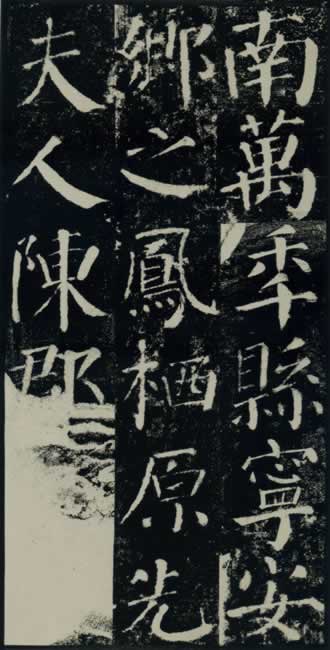 南萬年縣寧安
鄉之鳳栖原先
夫人陳郡